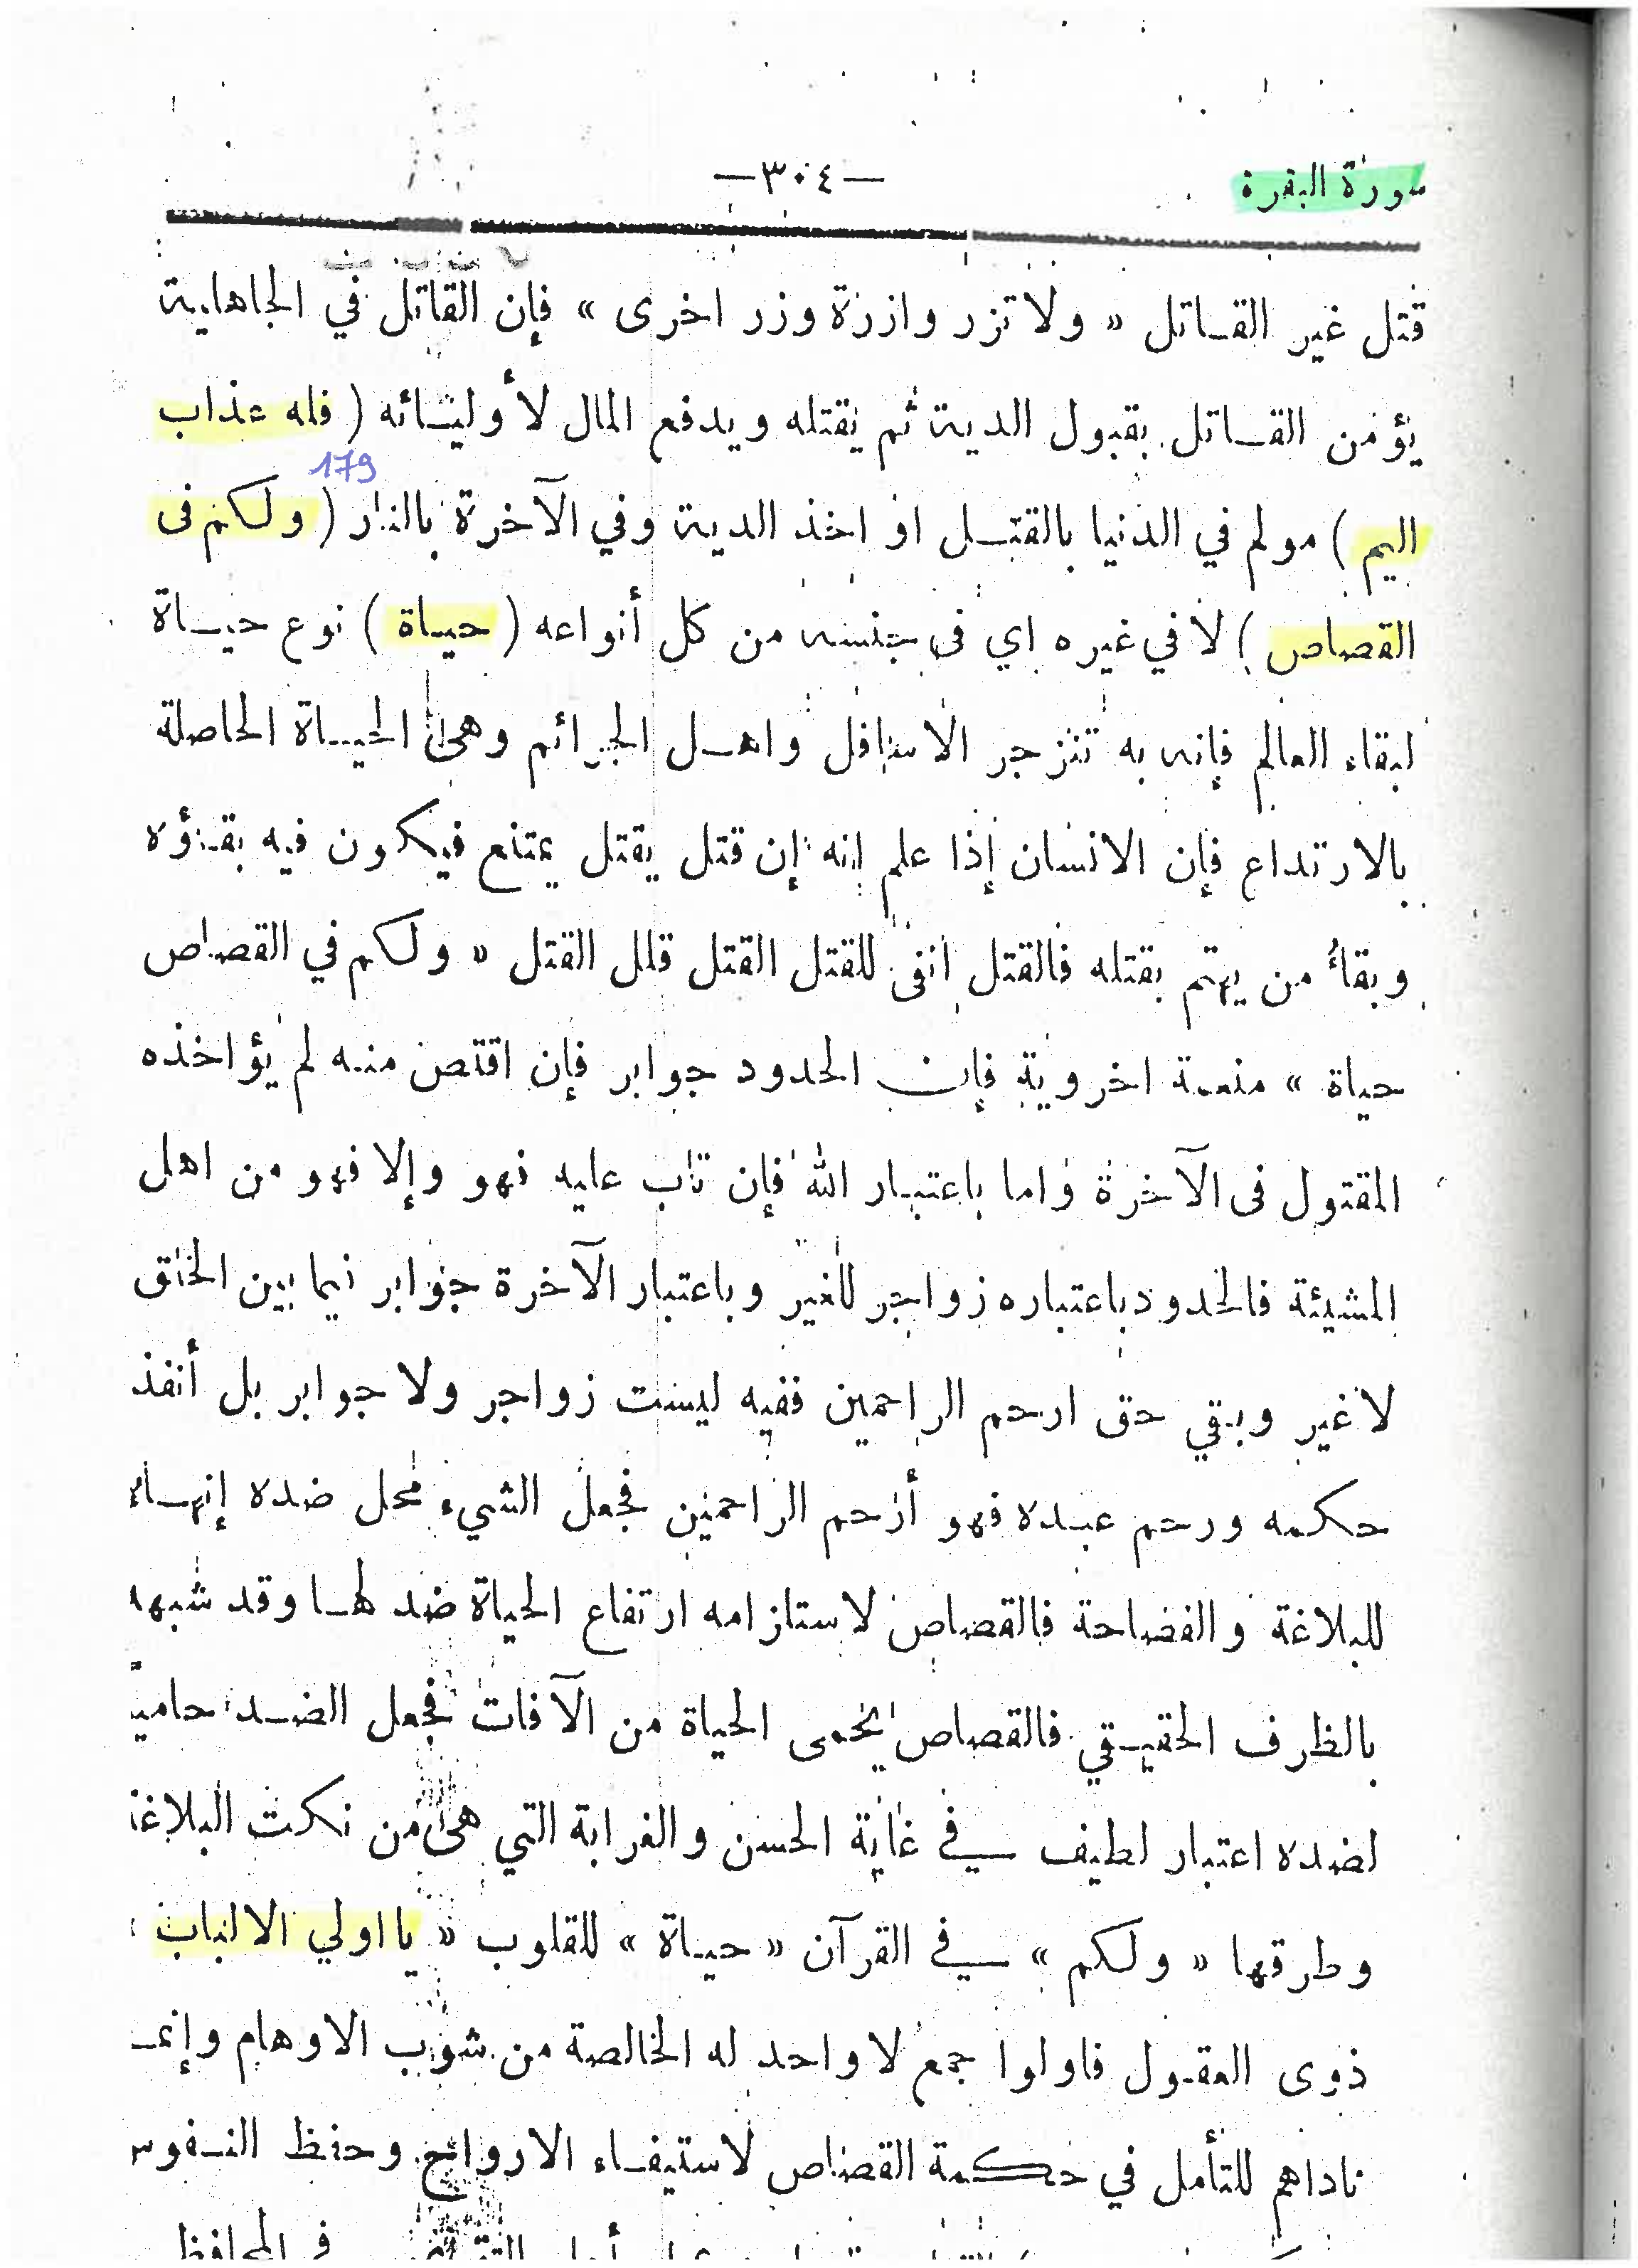 سورة البقرة
—٣٠٤—
قتل غير القاتل « ولا تزر وازرة وزر اخرى » فإن القاتل في الجاهلية
يؤمن القاتل بقبول الدية ثم يقتله ويدفع المال لأوليائه ( فله عذاب
179
اليم ) مولم في الدنيا بالقتل او اخذ الدية وفي الآخرة بالنار ( ولكم فى
القصاص ) لا في غيره اي فى جنسه من كل أنواعه ( حياة ) نوع حياة
لبقاء العالم فإنه به تنزجر الاسافل واهل الجرائم وهى الحياة الحاصلة
بالارتداع فإن الانسان إذا علم انه إن قتل يقتل يمتنع فيكون فيه بقاؤه
وبقاء من يهتم بقتله فالقتل انفى للقتل القتل قلل القتل « ولكم في القصاص
حياة » منعمة اخروية فإن الحدود جوابر فإن اقتص منه لم يؤاخذه
المقتول فى الآخرة واما باعتبار الله فإن تاب عليه فهو وإلا فهو من اهل
المشيئة فالحدود باعتباره زواجر للغير وباعتبار الآخرة جوابر فيما بين الخلق
لا غير وبقي حق ارحم الراحمين ففيه ليست زواجر ولا جوابر بل أنفذ
حكمه ورحم عبده فهو أرحم الراحمين فجعل الشيء محل ضده إنهاء
للبلاغة والفصاحة فالقصاص لاستلزامه ارتفاع الحياة ضد لها وقد شبهه
بالظرف الحقيقي فالقصاص يحمى الحياة من الآفات فجعل الضد حاميا
لضده اعتبار لطيف في غاية الحسن والغرابة التي هى من نكت البلاغة
وطرقها « ولكم » في القرآن « حياة » للقلوب « يا اولي الالباب
ذوى العقول فاولوا جمع لا واحد له الخالصة من شوب الاوهام وإنما
ناداهم للتأمل في حكمة القصاص لاستيفاء الارواح وحفظ النفوس
في المحافظ